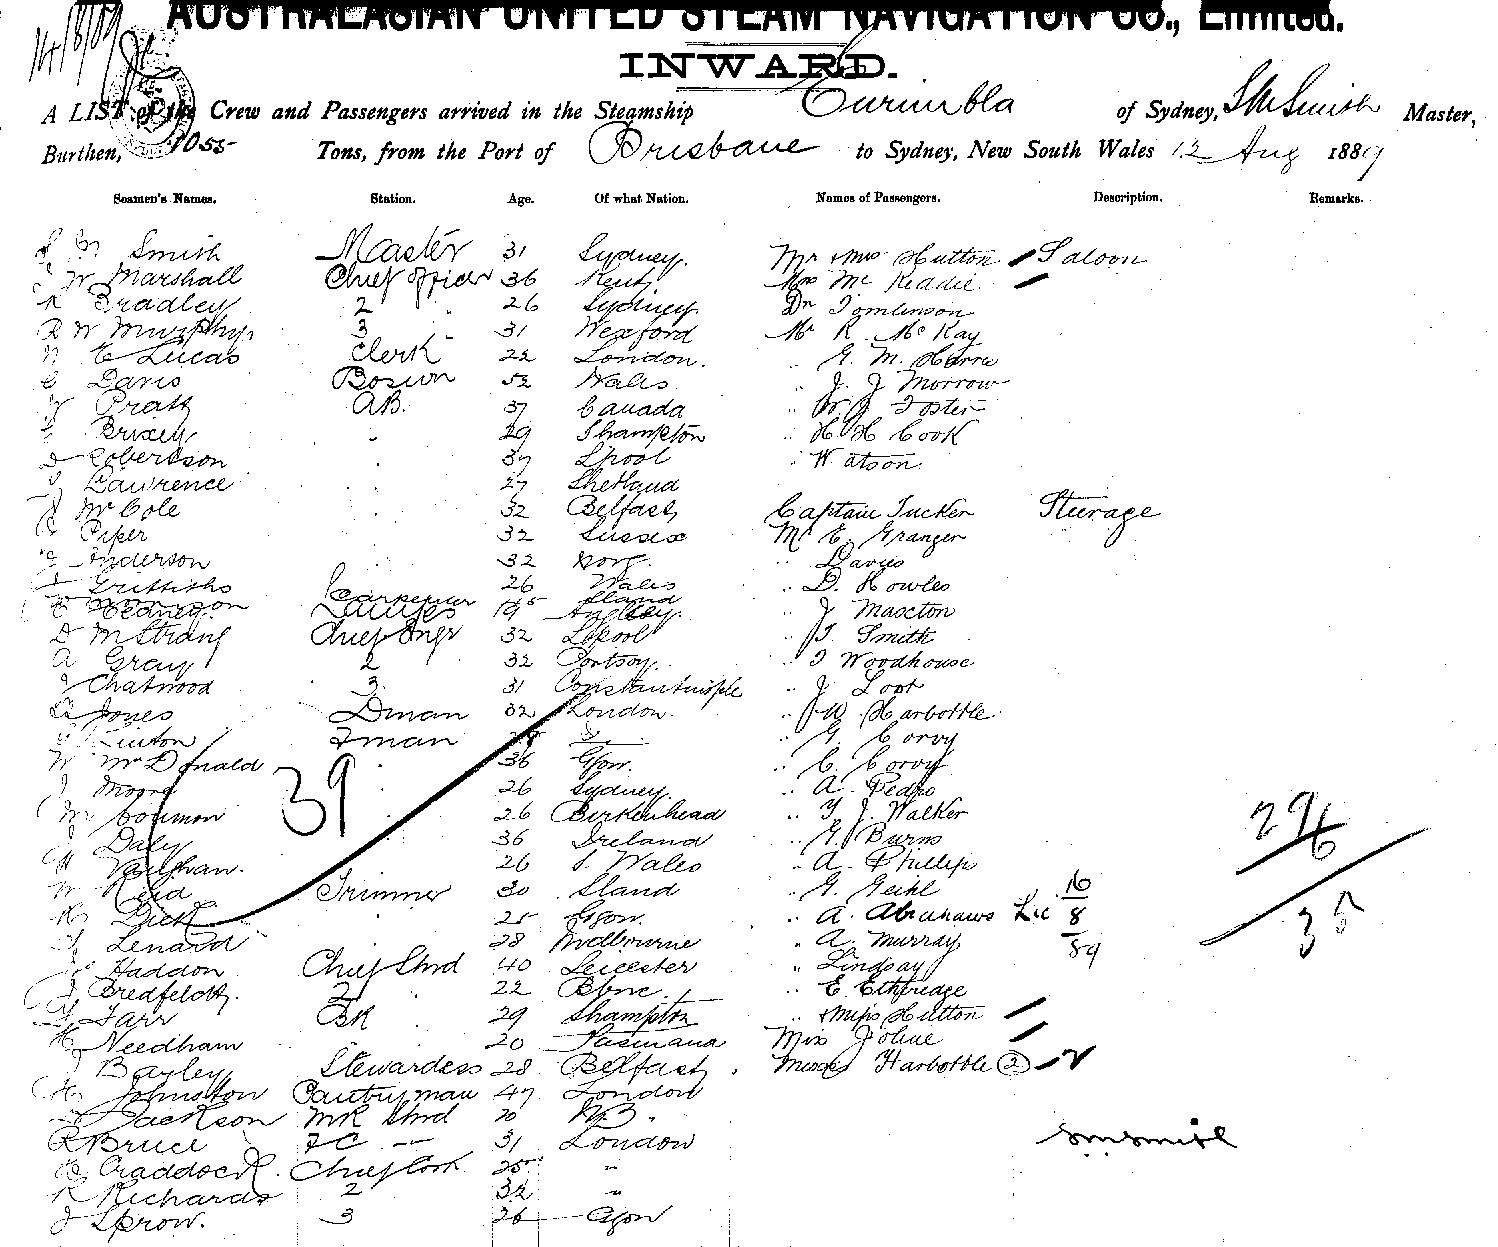 14/8/89
AUSTRALASIAN UNITED STEAM NAVIGATION CO., Limited.
INWARD.
A LIST of the Crew and Passengers arrived in the Steamship Curimbla of Sydney, Smith Master,
Burthen, 1055 Tons, from the Port of Brisbane to Sydney, New South Wales 12 Aug 1889
Seamen's Names. Station. Age. Of what Nation. Names of Passengers. Description. Remarks.
Smith Master 31 Sydney. Mr & Mrs Hutton Saloon
W Marshall Chief officer 36 Kent Mrs Mc Keddie
Bradley 2 26 Sydney. Dr Tomlinson
R W Murphy 3 31 Wexford Mr R. McKay
E Lucas Clerk 22 London. G. M.
Davis Bosun 52 Wales J. J Morrow
Pratt AB. 37 Canada W. J Foster
29 Shampton H H Cook
Robertson 37 Lpool Watson.
Lawrence 27 Shetland
McCole 32 Belfast Captain Tucker Steerage
Piper 32 Sussex Mr E. Granger
Anderson 32 Norg. Davies
Griffiths 26 Wales D. Howles
Carpenter Sland
19 J Maxton
D McStrang Chief Engr 32 Lpool J. Smith
A Gray 2 32 Portsoy. J Woodhouse
Chatwood 3 31 Constantinople J
Jones Dman 32 London. W Harbottle
Linton Fman G. Corvy
W McDonald 36 Gow. C. Corvy
J Moore 26 Sydney A. Pedro
26 Birkenhead J. Walker
39
Daly 36 Ireland G. Burns
Vaughan. 26 S. Wales A. Phillips
W Reid Trimmer 30 Sland G. 16
Dick 25 Gow. A. Abrahams Lic 8
Lenard 28 Melbourne A Murray 89
296
35
Haddon Chief Stwd 40 Leicester Lindsay
Bredfeldt. 2 22 Bbne. E Etheridge
Farr BK 29 Shampton & Miss Hutton
Needham 20 Tasmana Miss Joline
Bayley Stewardess 28 Belfast. Misses Harbottle 2
Johnston Pantryman 47 London
Jackson MR Stwd 20 N.B.
R Bruce FC 31 London SmSmith
Craddock. Chief Cook 25 "
R Richards 2 32 "
J Sprow. 3 26 Gow